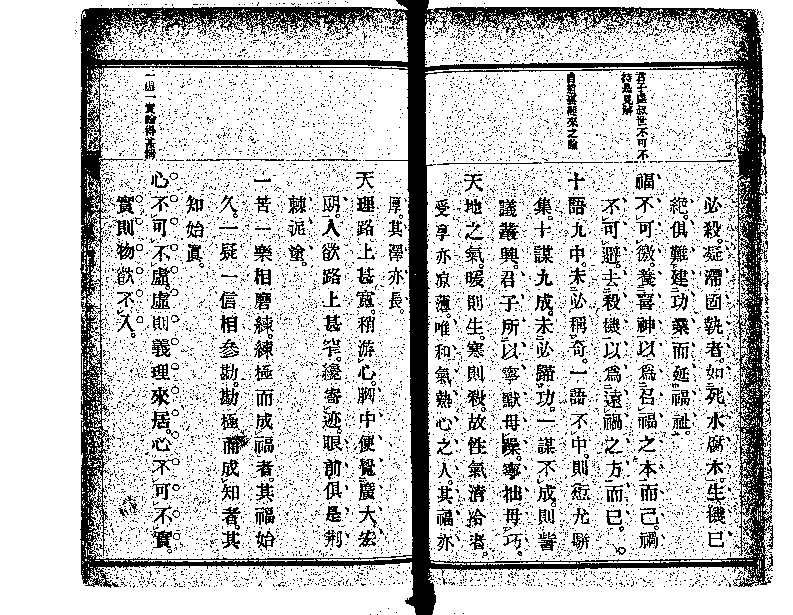 必殺。凝滯固執者。如死水腐木。生機已
絕。俱難建功業而延福祉。
福不可徼。養喜神以爲召福之本而已。禍
不可避。去殺機以爲遠禍之方而已。
十語九中未必稱奇。一語不中。則愆尤駢
集。十謀九成。未必歸功。一謀不成。則訾
議叢興。君子所以寧默毋躁。寧拙毋巧。
天地之氣。暖則生。寒則殺。故性氣清冷者。
受享亦凉薄。唯和氣熱心之人。其福亦
厚。其澤亦長。
天理路上甚寬。稍游心。胸中便覺廣大宏
朗。人欲路上甚窄。纔寄迹。眼前俱是荆
棘泥塗。
一苦一樂相磨練。練極而成福者。其福始
久。一疑一信相參勘。勘極而成知者。其
知始眞。
心不可不虛。虛則義理來居。心不可不實。
實則物欲不入。